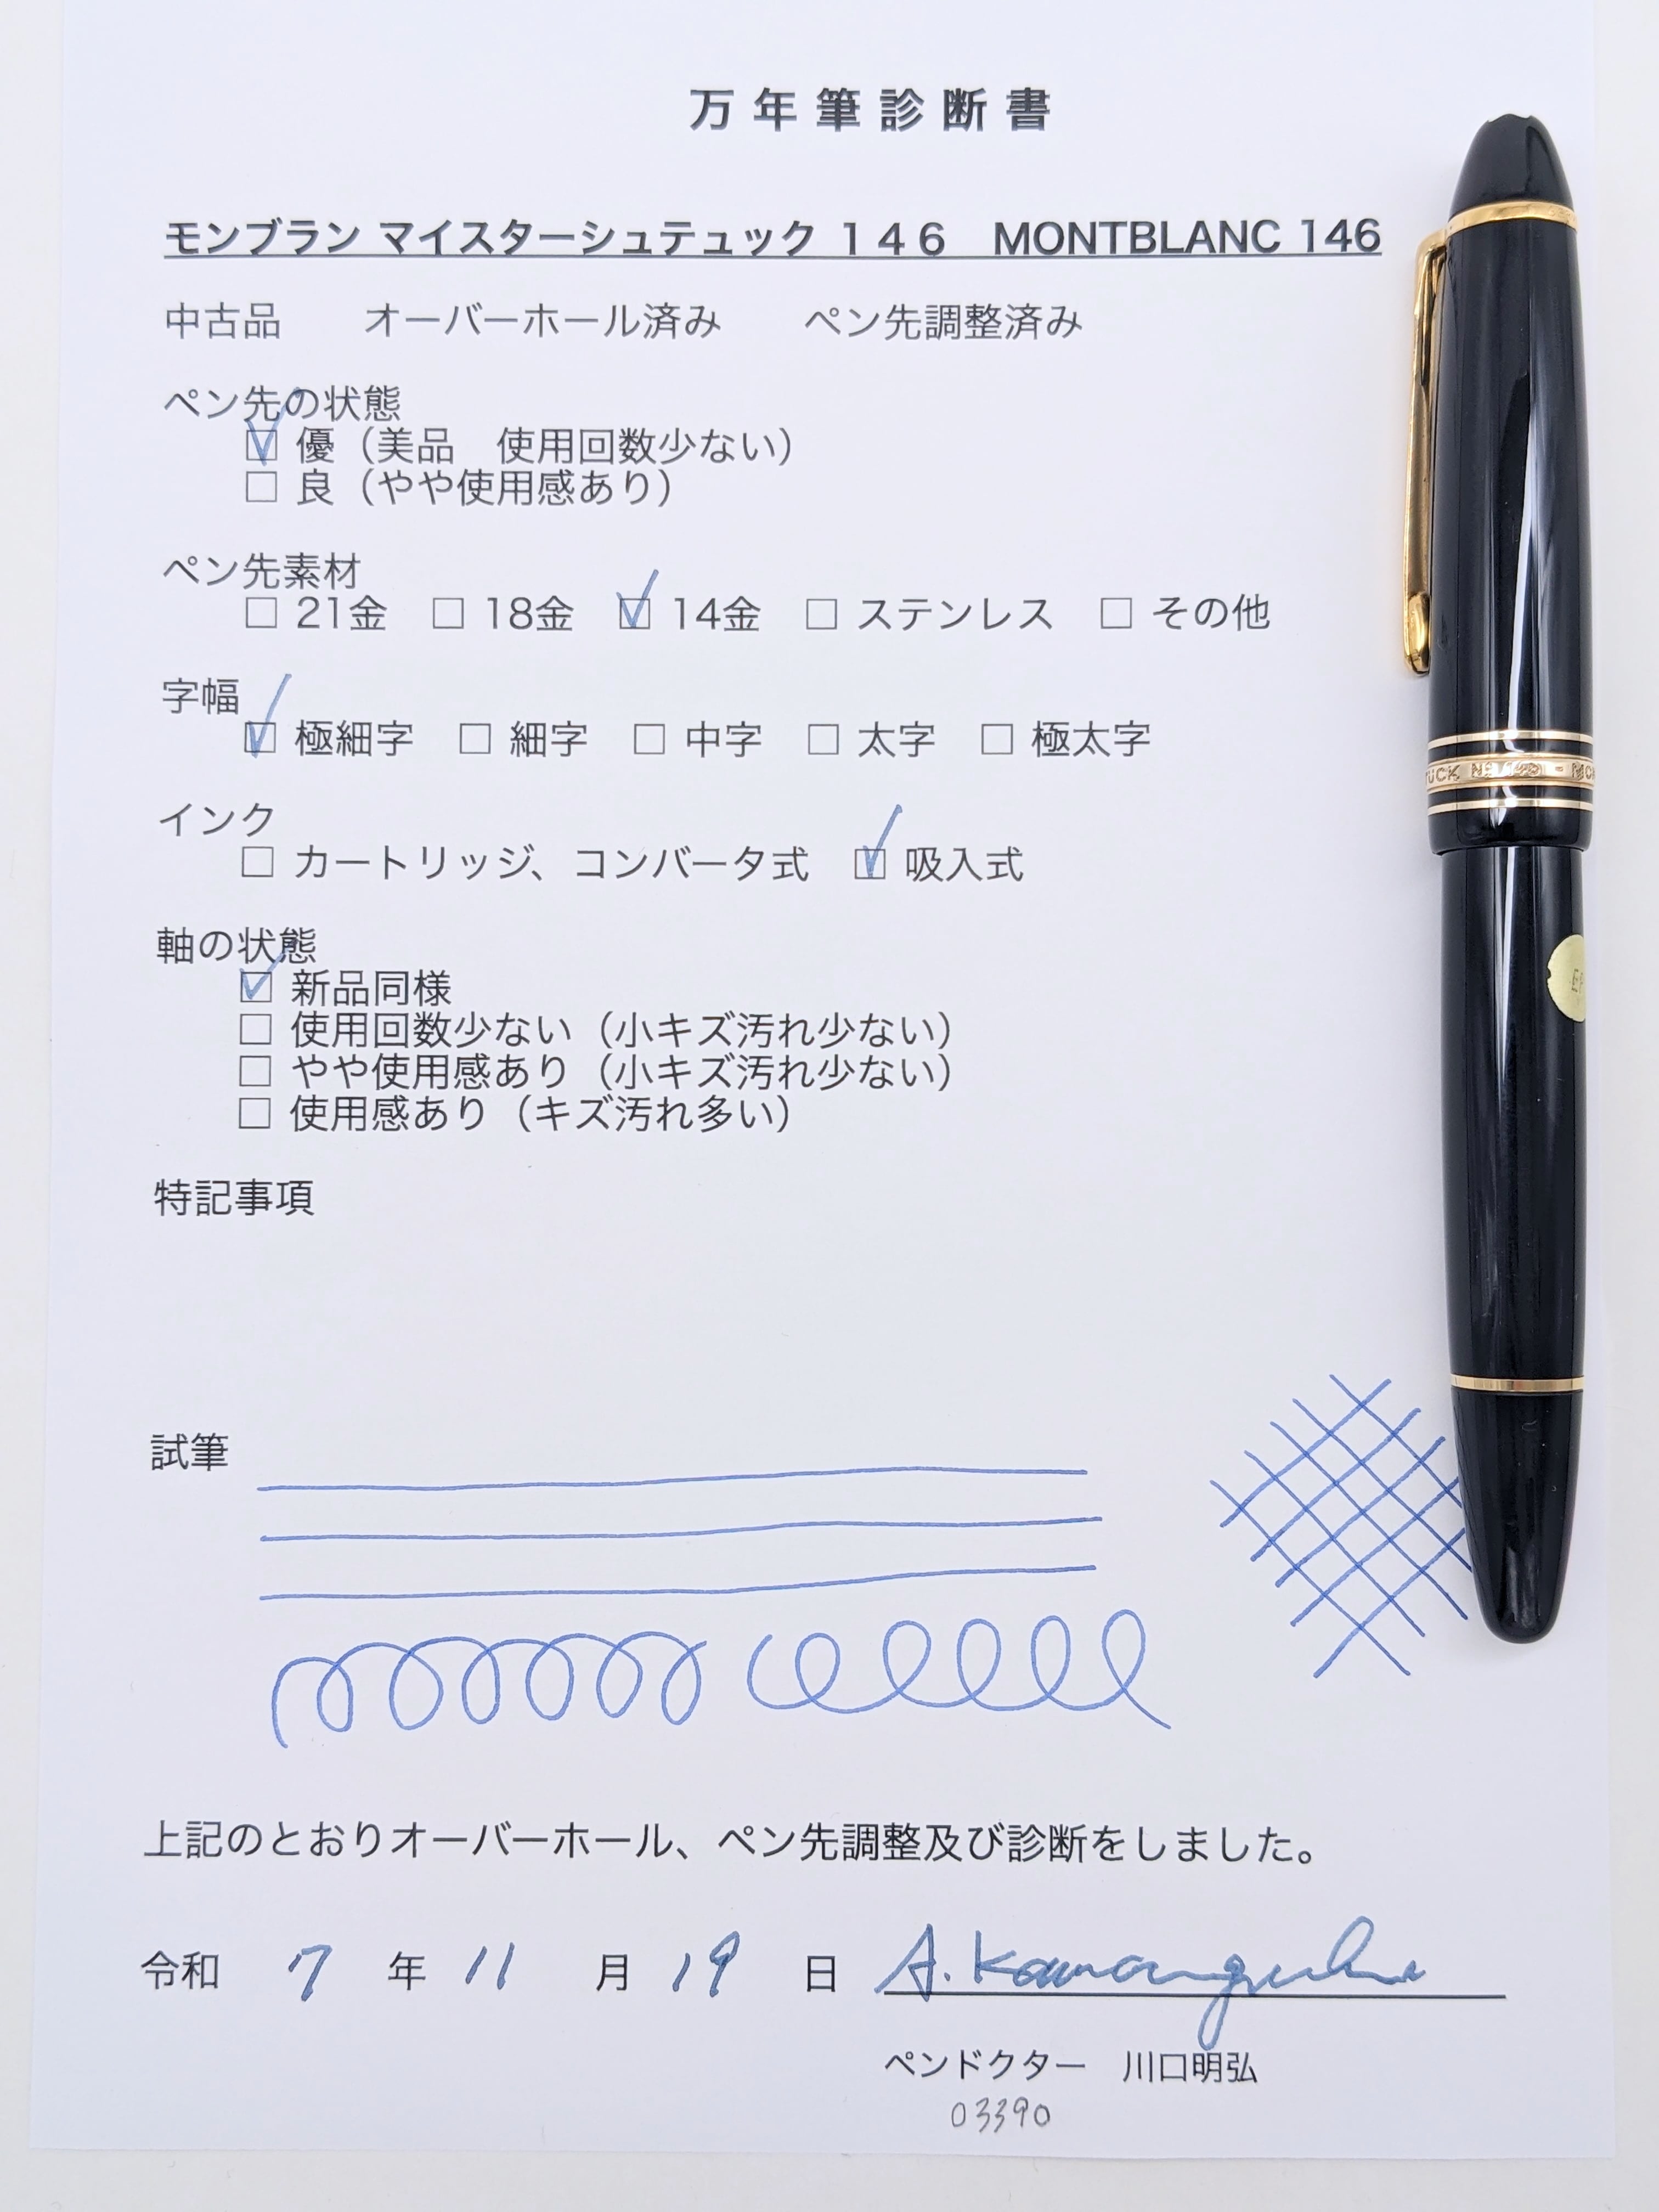 万年筆診断書
モンブラン マイスターシュテュック １４６　MONTBLANC 146
中古品　オーバーホール済み　ペン先調整済み
ペン先の状態
☑ 優（美品　使用回数少ない）
☐ 良（やや使用感あり）
ペン先素材
☐ 21金 ☐ 18金 ☑ 14金 ☐ ステンレス ☐ その他
字幅
☑ 極細字 ☐ 細字 ☐ 中字 ☐ 太字 ☐ 極太字
インク
☐ カートリッジ、コンバータ式 ☑ 吸入式
軸の状態
☑ 新品同様
☐ 使用回数少ない（小キズ汚れ少ない）
☐ やや使用感あり（小キズ汚れ少ない）
☐ 使用感あり（キズ汚れ多い）
特記事項
試筆
上記のとおりオーバーホール、ペン先調整及び診断をしました。
令和 7 年 11 月 19 日 A. Kawaguchi
ペンドクター　川口明弘
03390
TUCK
EF